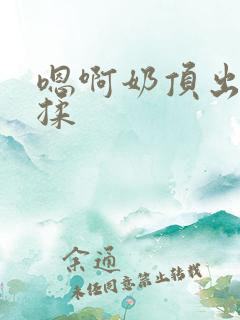 嗯啊奶頂出
揉
余通
未经同意禁止转载